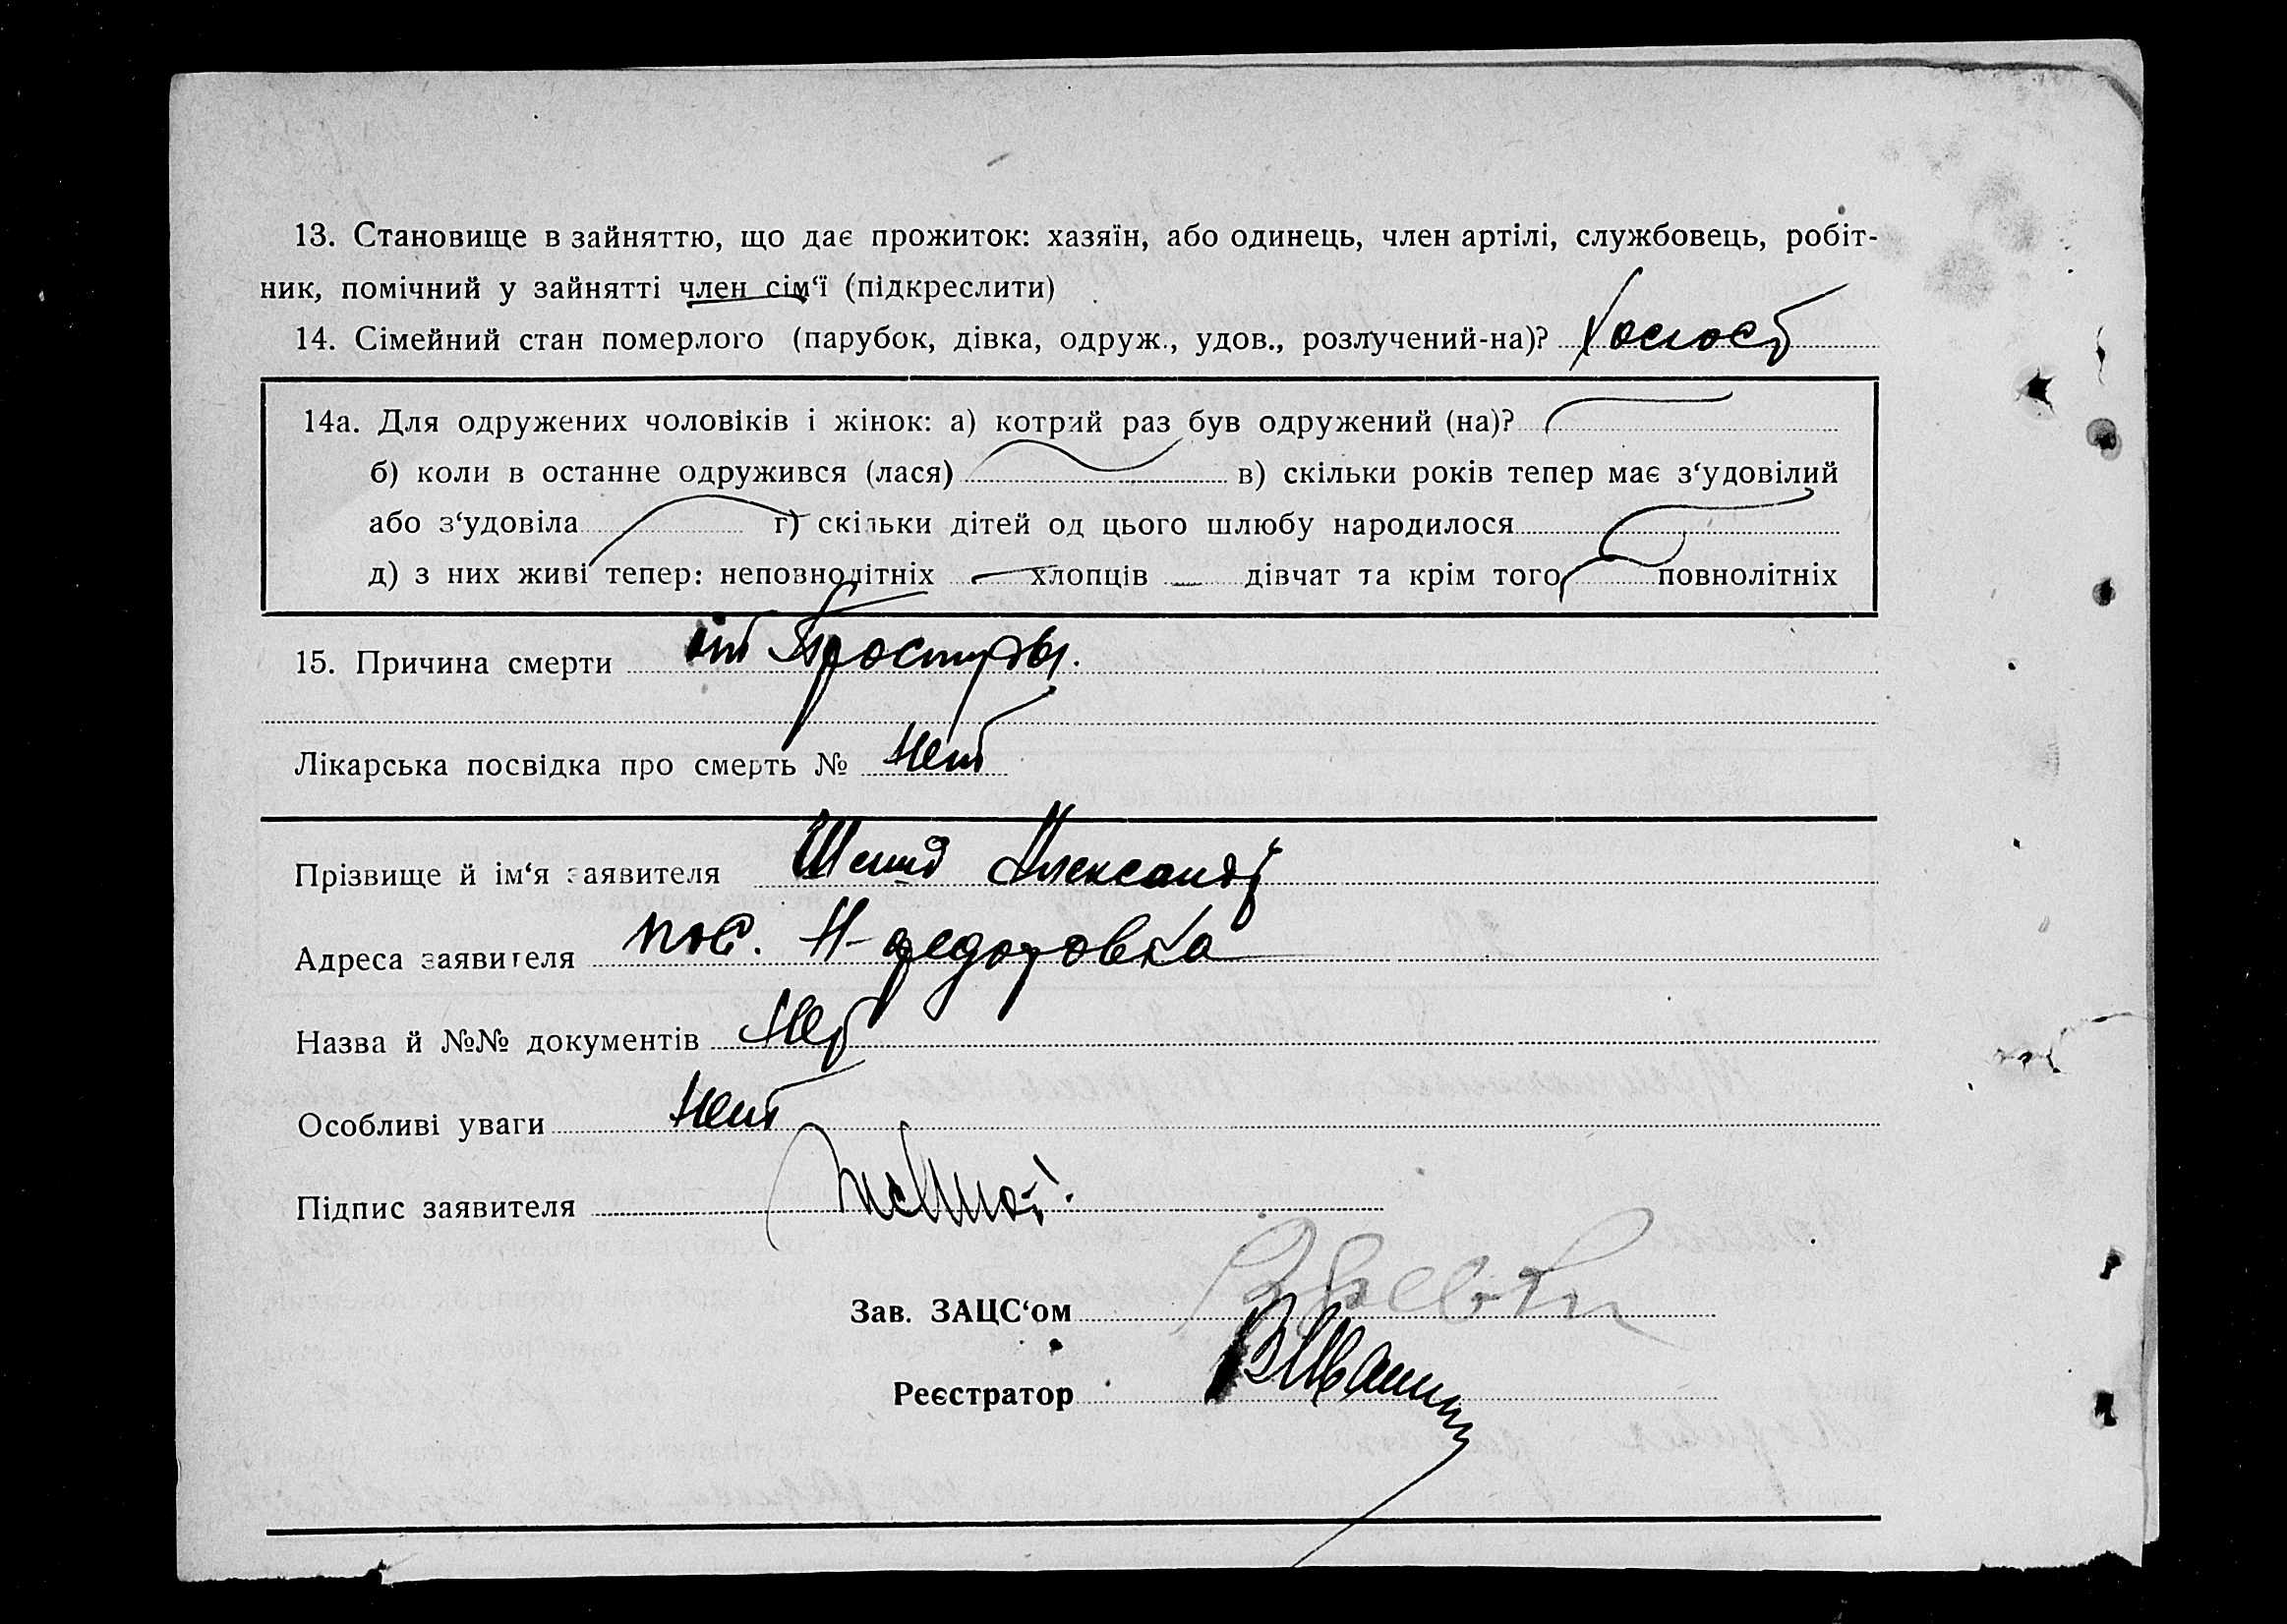 13. Становище в зайняттю, що дає прожиток: хазяїн, або одинець, член артілі, службовець, робіт-
ник, помічний у зайнятті член сім‘ї (підкреслити)
14. Сімейний стан померлого (парубок, дівка, одруж., удов., розлучений-на)? Холост
14а. Для одружених чоловіків і жінок: а) котрий раз був одружений (на)?
б) коли в останне одружився (лася) в) скільки років тепер має з‘удовілий
або з‘удовіла г) скільки дітей од цього шлюбу народилося
д) з них живі тепер: неповнолітніх хлопців дівчат та крім того повнолітніх
15. Причина смерти от Простуды.
Лікарська посвідка про смерть № нет
Прізвище й ім‘я заявителя Александр
Адреса заявителя пос. Н-федоровка
Назва й №№ документів Нет
Особливі уваги Нет
Підпис заявителя
Зав. ЗАЦС‘ом
Реєстратор